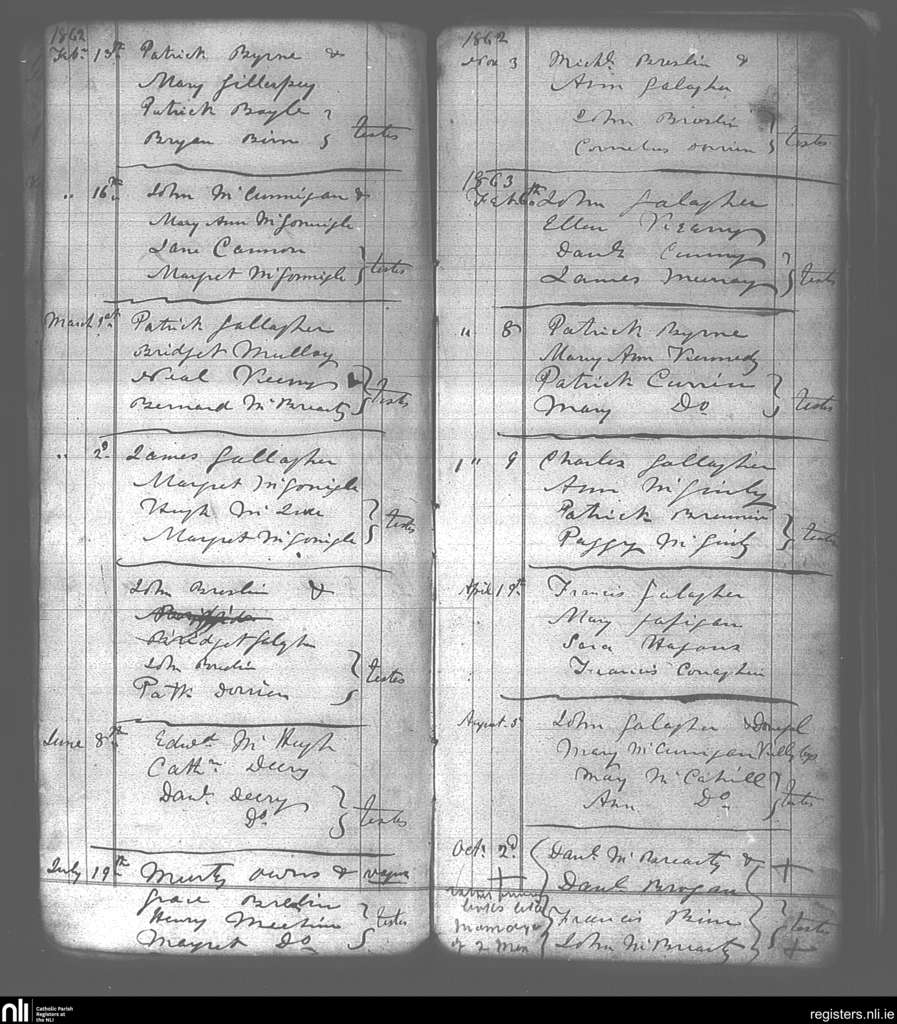 1862
Feb. 13th Patrick Byrne &
Mary Gillespey
Patrick Boyle
Bryan Birne } testes
" 16th John McCunnigan &
Mary Ann McGonnigle
Jane Cannon
Margret McGonnigle } testes
March 1st Patrick Gallagher
Bridget Mulloy
Neal Keeny
Bernard McBrearty } testes
" 2d James Gallagher
Margret McGonigle
Hugh Mc
Margret McGonigle } testes
John Breslin &
Bridget Galaghr
John Breslin
Patk Dorrien } testes
June 8th Edwd McHugh
Cathn Deery
Danl Deery
Do } testes
July 19th Murty Owens &
Grace Breslin
Henry Meehin
Margret Do } testes
1862
Nov 3 Michl Breslin &
Ann Galagher
John Breslin
Cornelius Dorrien } testes
1863
Feb 6th John Galagher
Ellen Keeany
Danl Cunny
James Murray } testes
" 8 Patrick Byrne
Mary Ann Kennedy
Patrick Currin
Mary Do } testes
" 9 Charles Gallagher
Ann McGinly
Patrick Brennin
Paggy McGinly } testes
April 19th Francis Galagher
Mary Gafigan
Sara
Francis Conaghin
August 5 John Galagher & Donegal
Mary McCunigan Killybgs
Mary McCahill
Ann Do } testes
Oct. 2d Danl McBrearty &
Danl Brogan
Francis Birne
John McBrearty } testes
marriage
of 2 men
nli Catholic Parish
Registers at
the NLI
registers.nli.ie